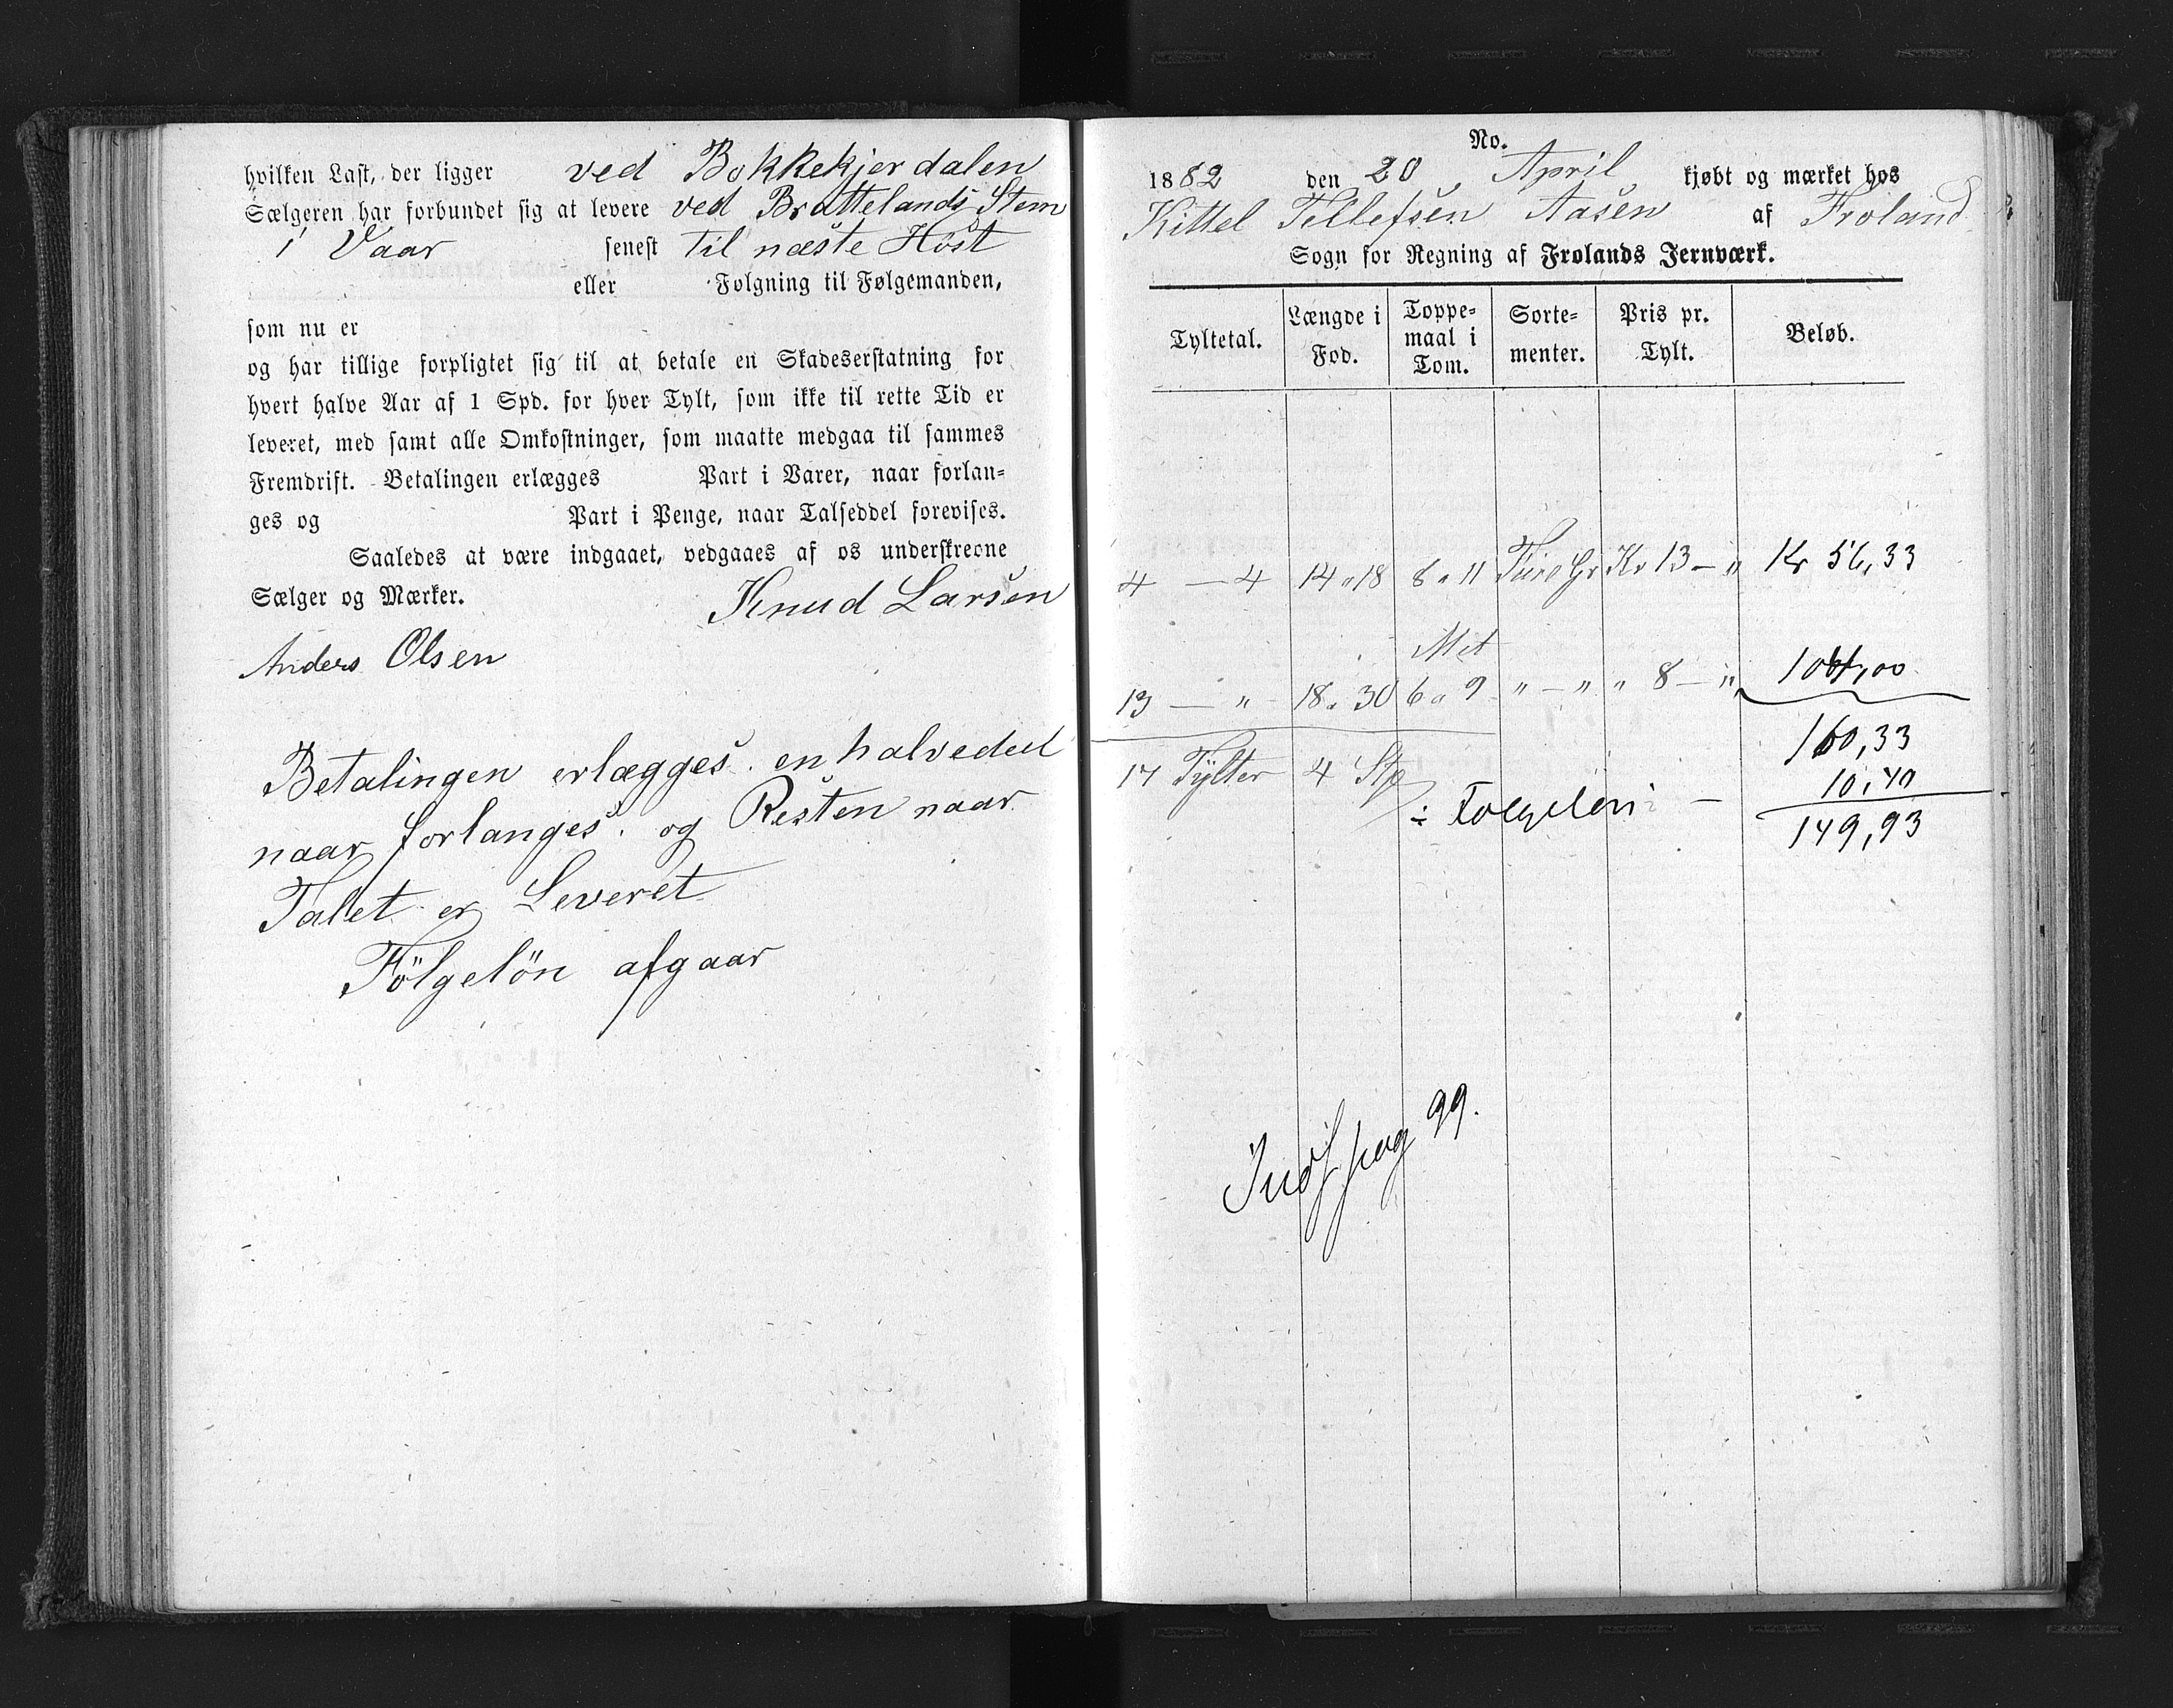 hvilken Last, der ligger ved Bokkekjerdalen
Sælgeren har forbundet sig at levere ved Brattelands Stem
i Vaar senest til næste Höst
eller Folgning til Følgemanden,
som nu er
og har tillige forpligtet sig til at betale en Skadeserstatning for
hvert halve Aar af 1 Spd. for hver Tylt, som ikke til rette Tid er
leveret, med samt alle Omkostninger, som maatte medgaa til sammes
Fremdrift. Betalingen erlægges Part i Varer, naar forlan=
ges og Part i Penge, naar Talseddel forevises.
Saaledes at være indgaaet, vedgaaes af os underskrevne
Sælger og Mærker. Knud Larsen
Anders Olsen
Betalingen erlægges en halvedeel
naar forlanges. og Resten naar
Tallet er Leveret
Fölgelön afgaar
No.
1882 den 20 April kjøbt og mærket hos
Kittel Tellefsen Aasen af Froland
Sogn for Regning af Frolands Jernværk.
Tyltetal. Længde i Fod. Toppe= maal i Tom. Sorte= menter. Pris pr. Tylt. Beløb.
4 — 4 14 a 18 8 a 11 Furu Gr Kr 13 — " Kr 56,33
Met
13 — " 18 a 30 6 a 9 " — " " 8 — " 104,00
160,33
17 Tylter 4 Stp
÷ Følgeløn — 10,40
149,93
Indf pag 99.